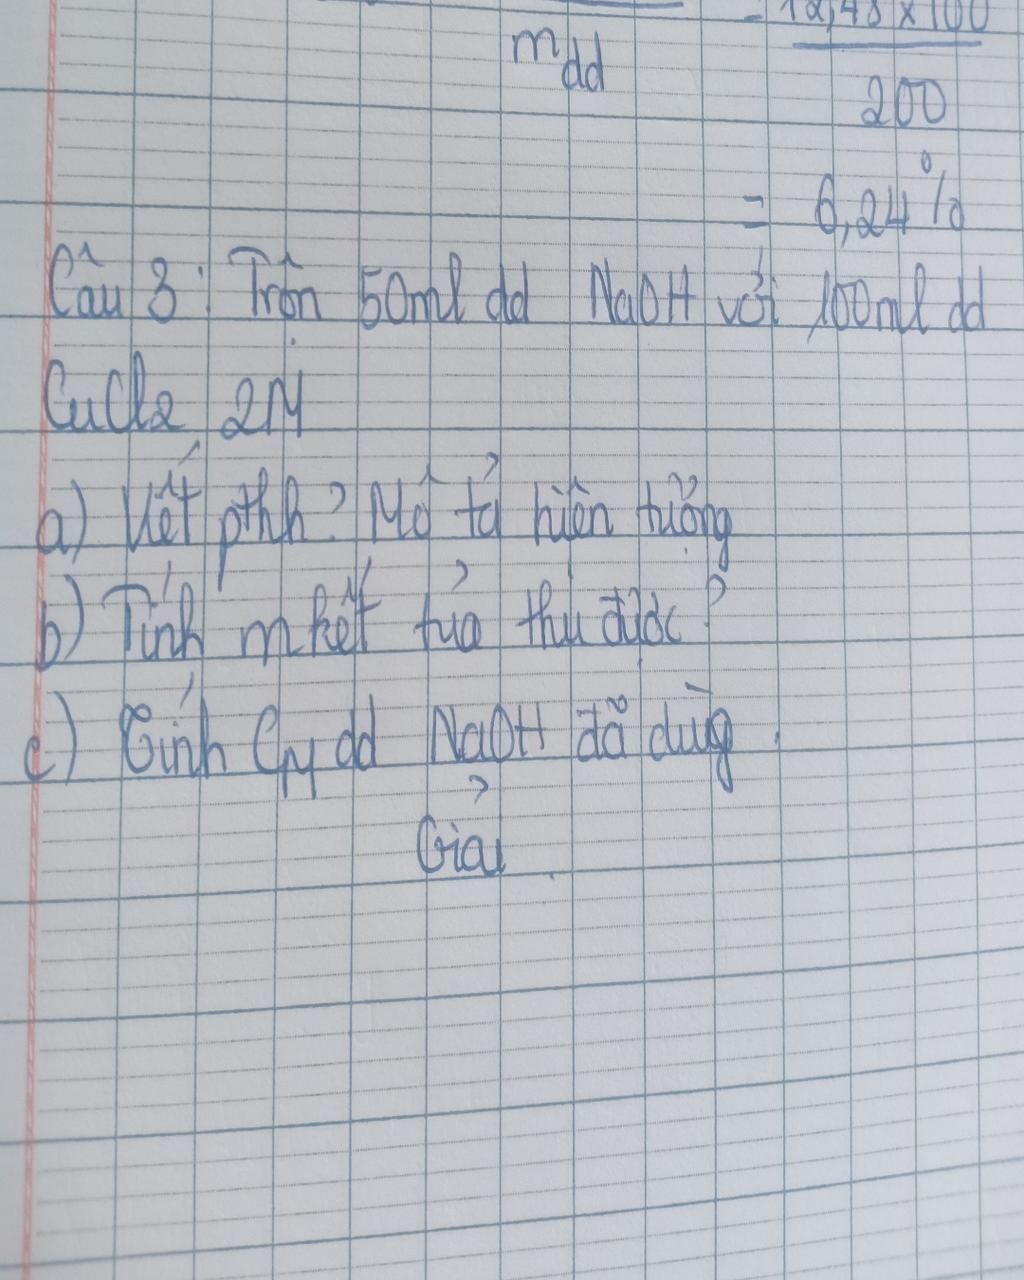 mdd
= 12,48 x 100
200
= 6,24%
Câu 3: Trộn 50ml dd NaOH với 100ml dd
CuCl2 2M
a) Viết pthh? Mô tả hiện tượng
b) Tính m kết tủa thu được?
c) Tính CM dd NaOH đã dùng.
Giải